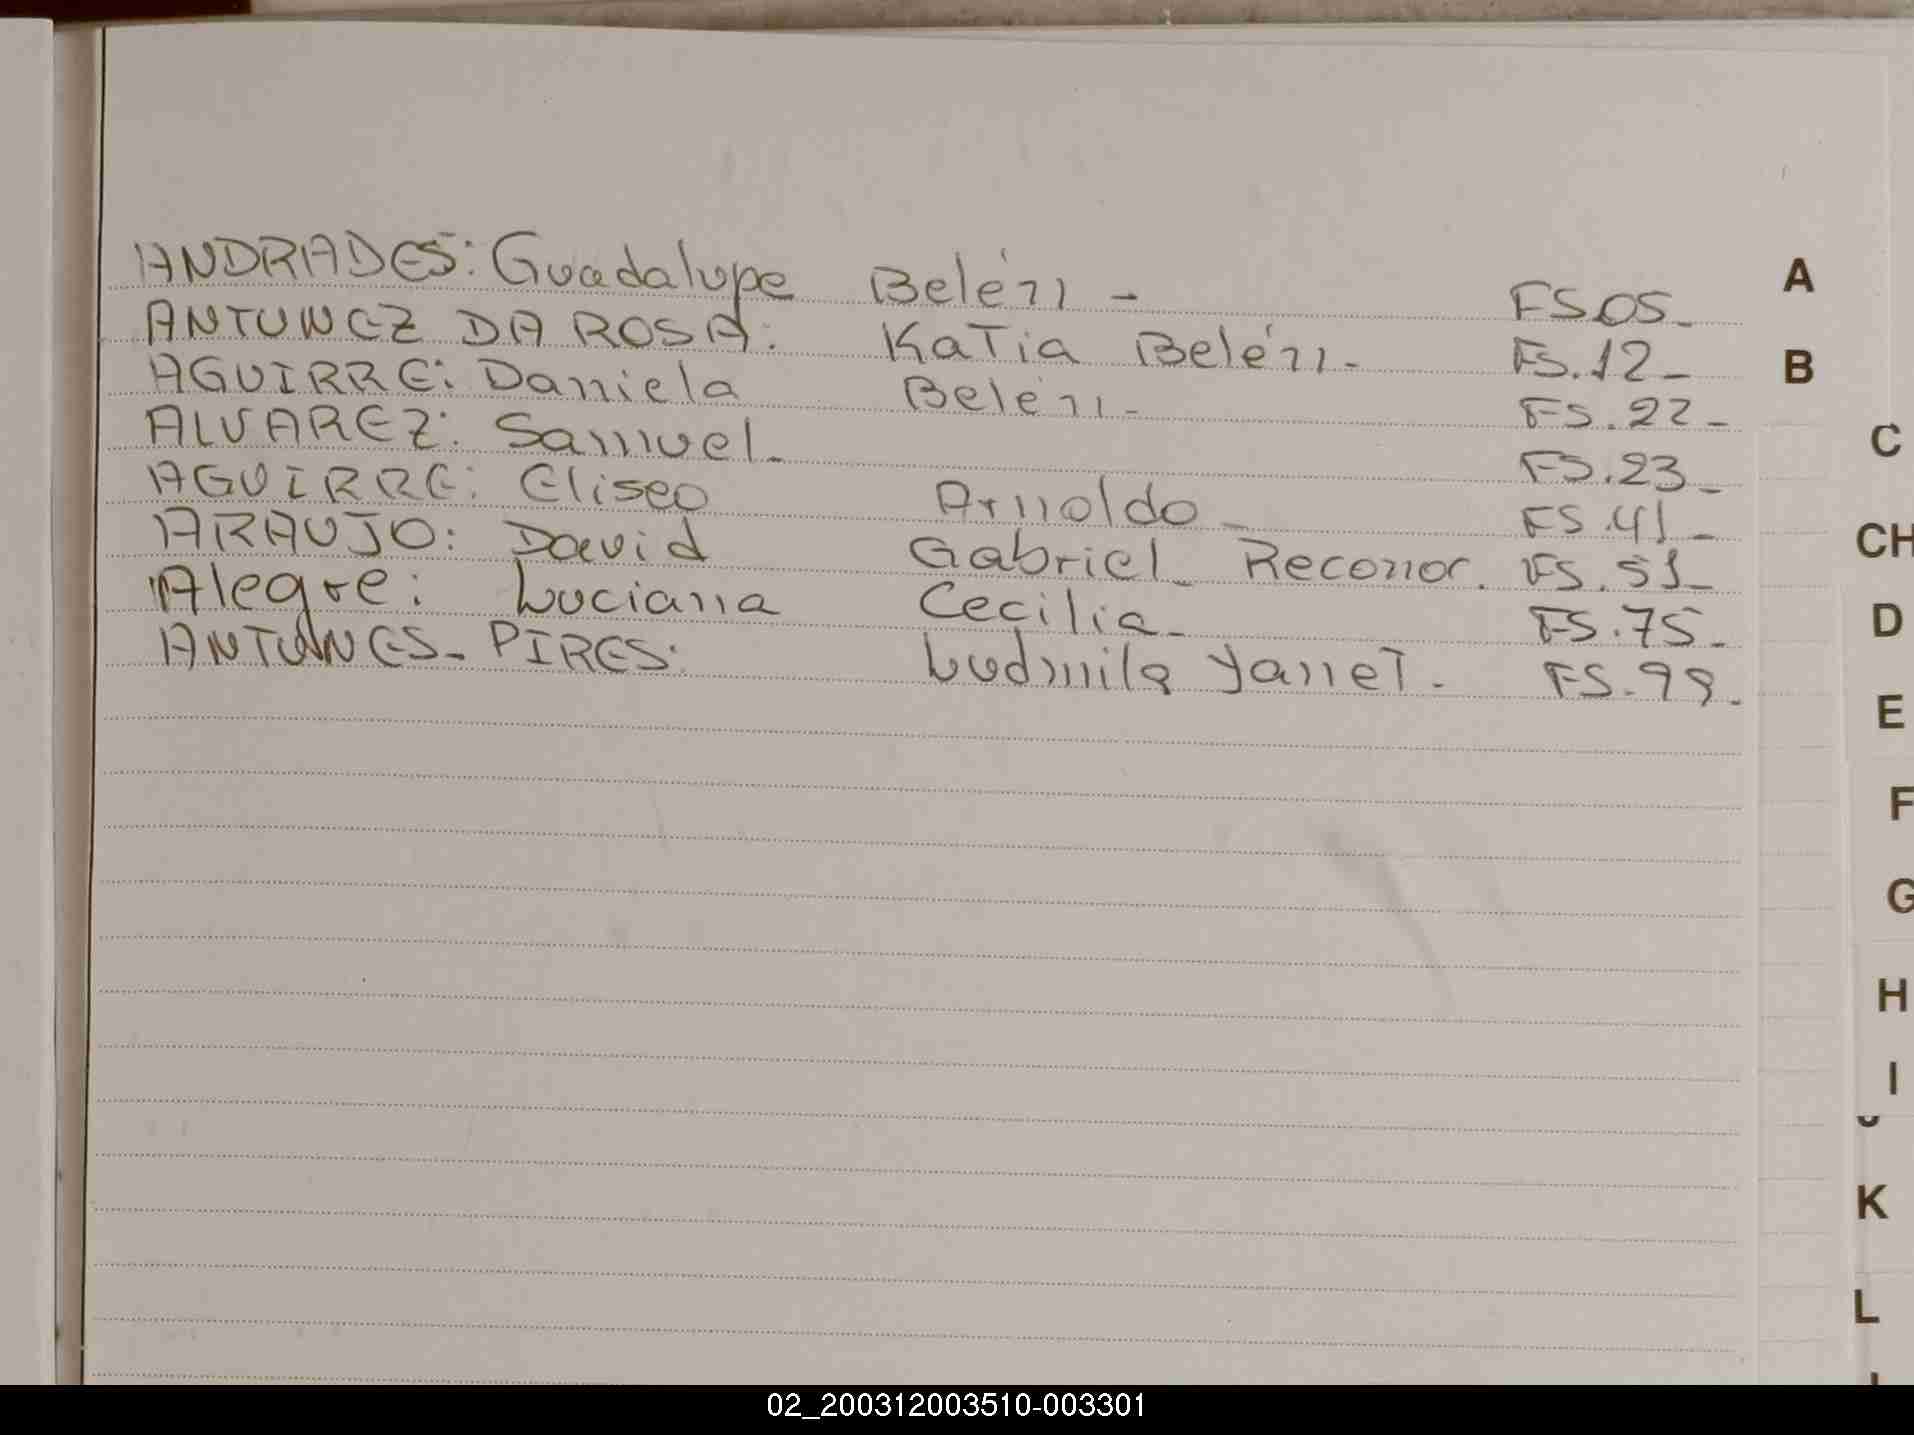 ANDRADES: Guadalupe Belén - FS.05-
ANTUNEZ DA ROSA: KaTia Belén - FS.12-
AGUIRRE: Daniela Belén - FS.22-
ALVAREZ: Samuel - FS.23-
AGUIRRE: Eliseo Arnoldo - FS.41-
ARAUJO: David Gabriel - Reconor. FS.51-
Alegre: Luciana Cecilia - FS.75-
ANTUNES - PIRES: Ludmila YanneT. FS.99-
A
B
C
CH
D
E
F
G
H
I
K
L
02_200312003510-003301